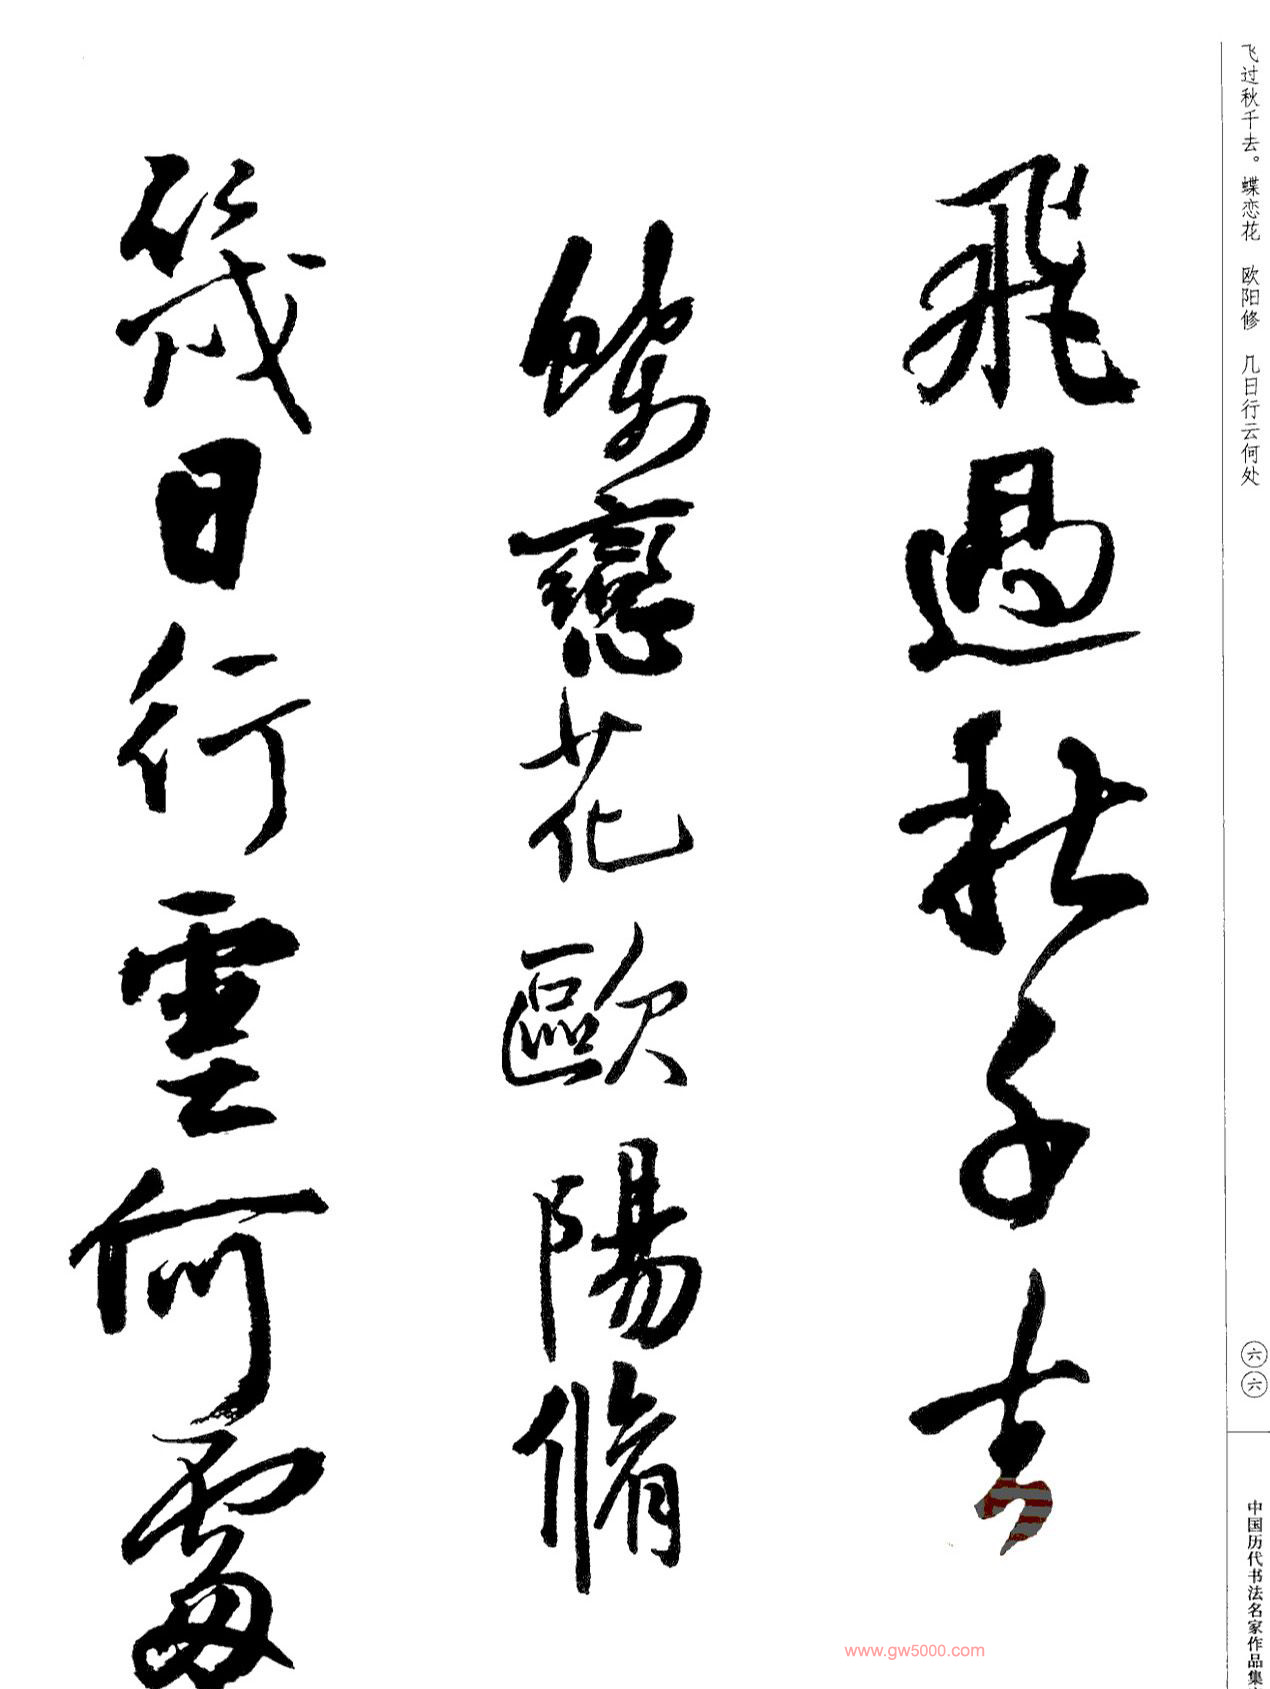 飞过秋千去。蝶恋花　欧阳修　几日行云何处
六六
中国历代书法名家作品集
飛過秋千去
蝶戀花歐陽脩
幾日行雲何處
www.gw5000.com